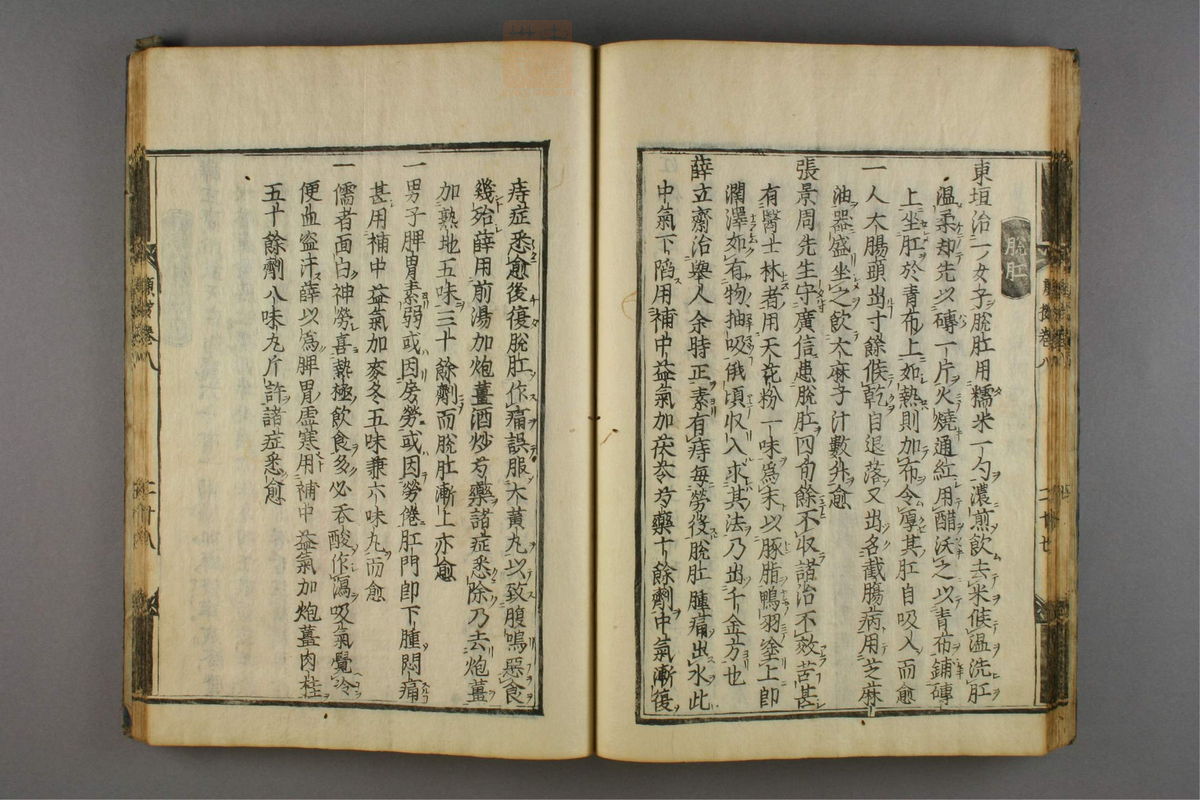 脫肛
東垣治一女子脫肛用糯米一勺濃煎飲去米候溫洗肛
溫柔却先以磚一片火燒通紅用醋沃之以青布鋪磚
上坐肛於青布上如熱則加布令厚其肛自吸入而愈
一人大腸頭出寸餘候乾自退落又出名截腸病用芝麻
油器盛坐之飲大麻子汁數升愈
張景周先生守廣信患脫肛四旬餘不收諸治不效苦甚
有醫士林者用天花粉一味為末以豚脂鴨羽塗上即
潤澤如有物抽吸俄頃收入求其法乃出千金方也
薛立齋治舉人余時正素有痔每勞役脫肛腫痛出水此
中氣下陷用補中益氣加茯苓芍藥十餘劑中氣漸復
痔症悉愈後復脫肛作痛誤服大黃丸以致腹鳴惡食
幾殆薛用前湯加炮薑酒炒芍藥諸症悉除乃去炮薑
加熟地五味三十餘劑而脫肛漸上亦愈
一男子脾胃素弱或因房勞或因勞倦肛門即下腫悶痛
甚用補中益氣加麥冬五味兼六味丸而愈
一儒者面白神勞喜熱極飲食多必吞酸作瀉吸氣覺冷
便血盜汗薛以為脾胃虛寒用補中益氣加炮薑肉桂
五十餘劑八味丸斤許諸症悉愈
卷八
二十七
卷八
二十八